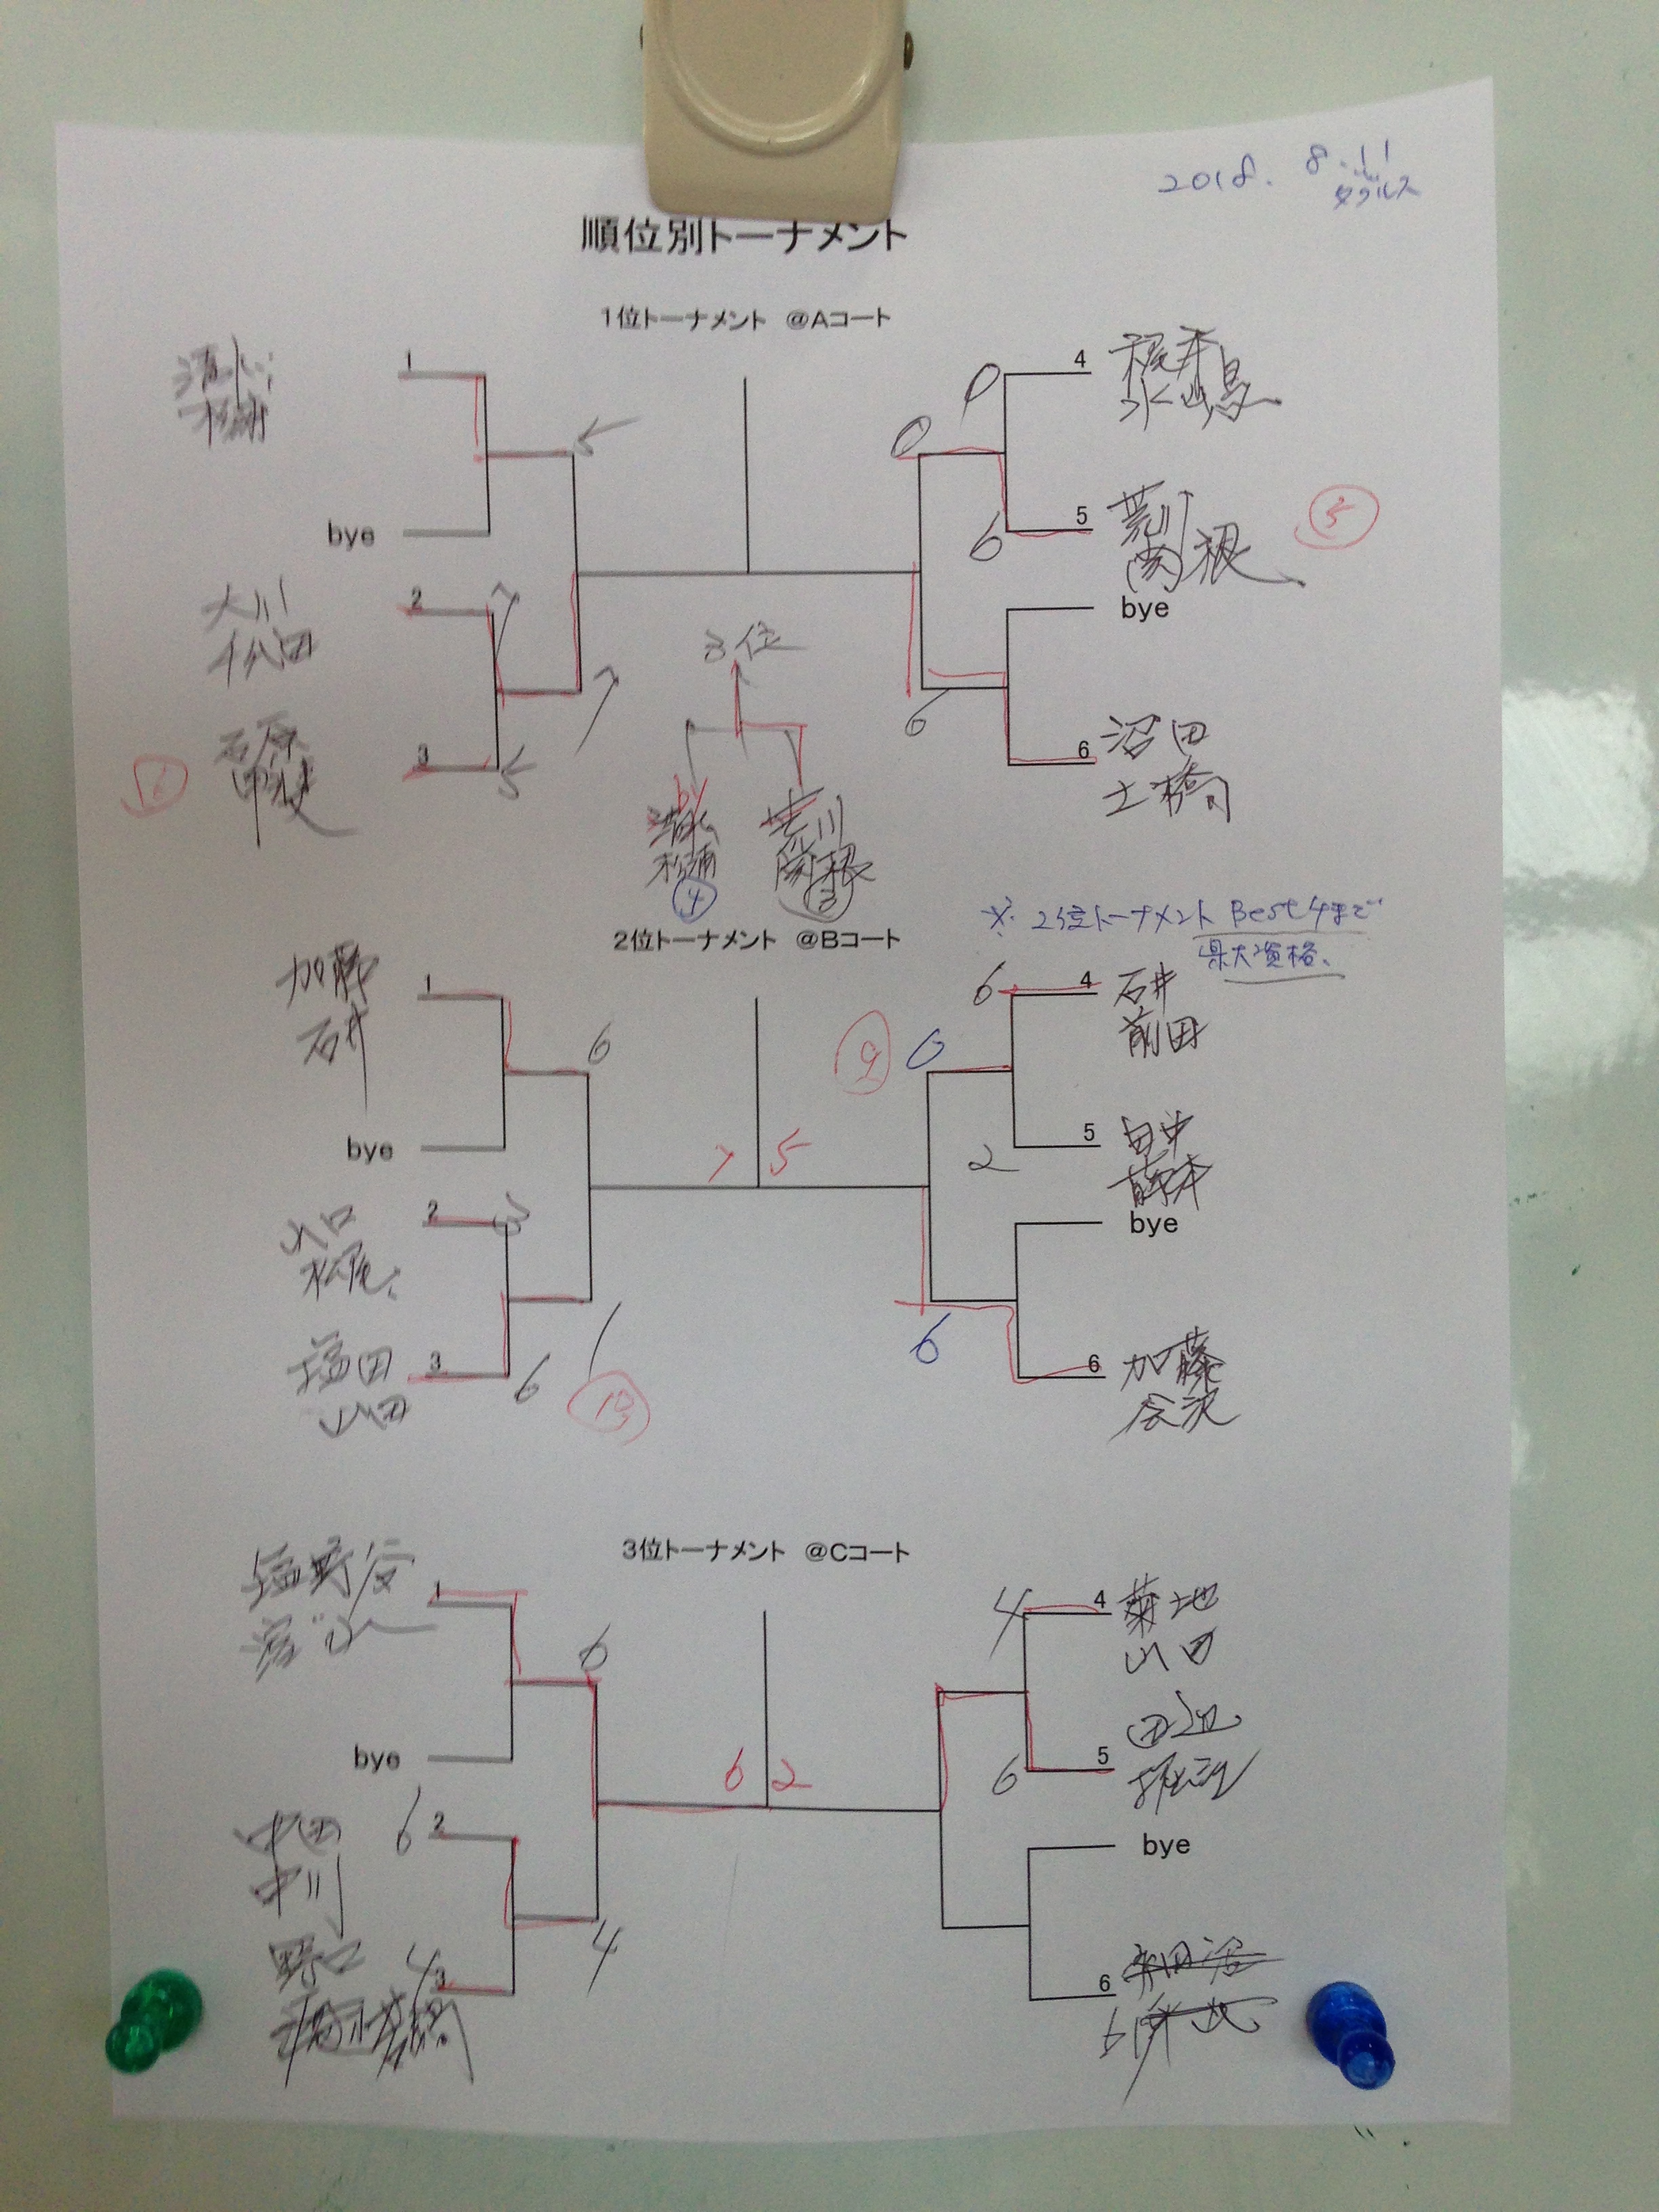 2018. 8.11
ダブルス
順位別トーナメント
1位トーナメント @Aコート
1
5
bye
2
大川
松田
7
3
石原
5
7
0
4
0
5
荒川
関根
6
⑤
bye
6
6
沼田
土橋
3位
荒川
関根
④
③
※ 2位トーナメント Best4まで
県大資格、
2位トーナメント @Bコート
1
加藤
石井
6
bye
2
山口
松尾
3
3
塩田
山田
6
1
7 5
⑨
0
6
4
石井
前田
5
田中
2
bye
6
6
加藤
会沢
3位トーナメント @Cコート
1
塩野谷
6
bye
6
2
中田
中川
4
3
野口
4
6 2
4
4
菊地
山田
6
5
田辺
bye
6